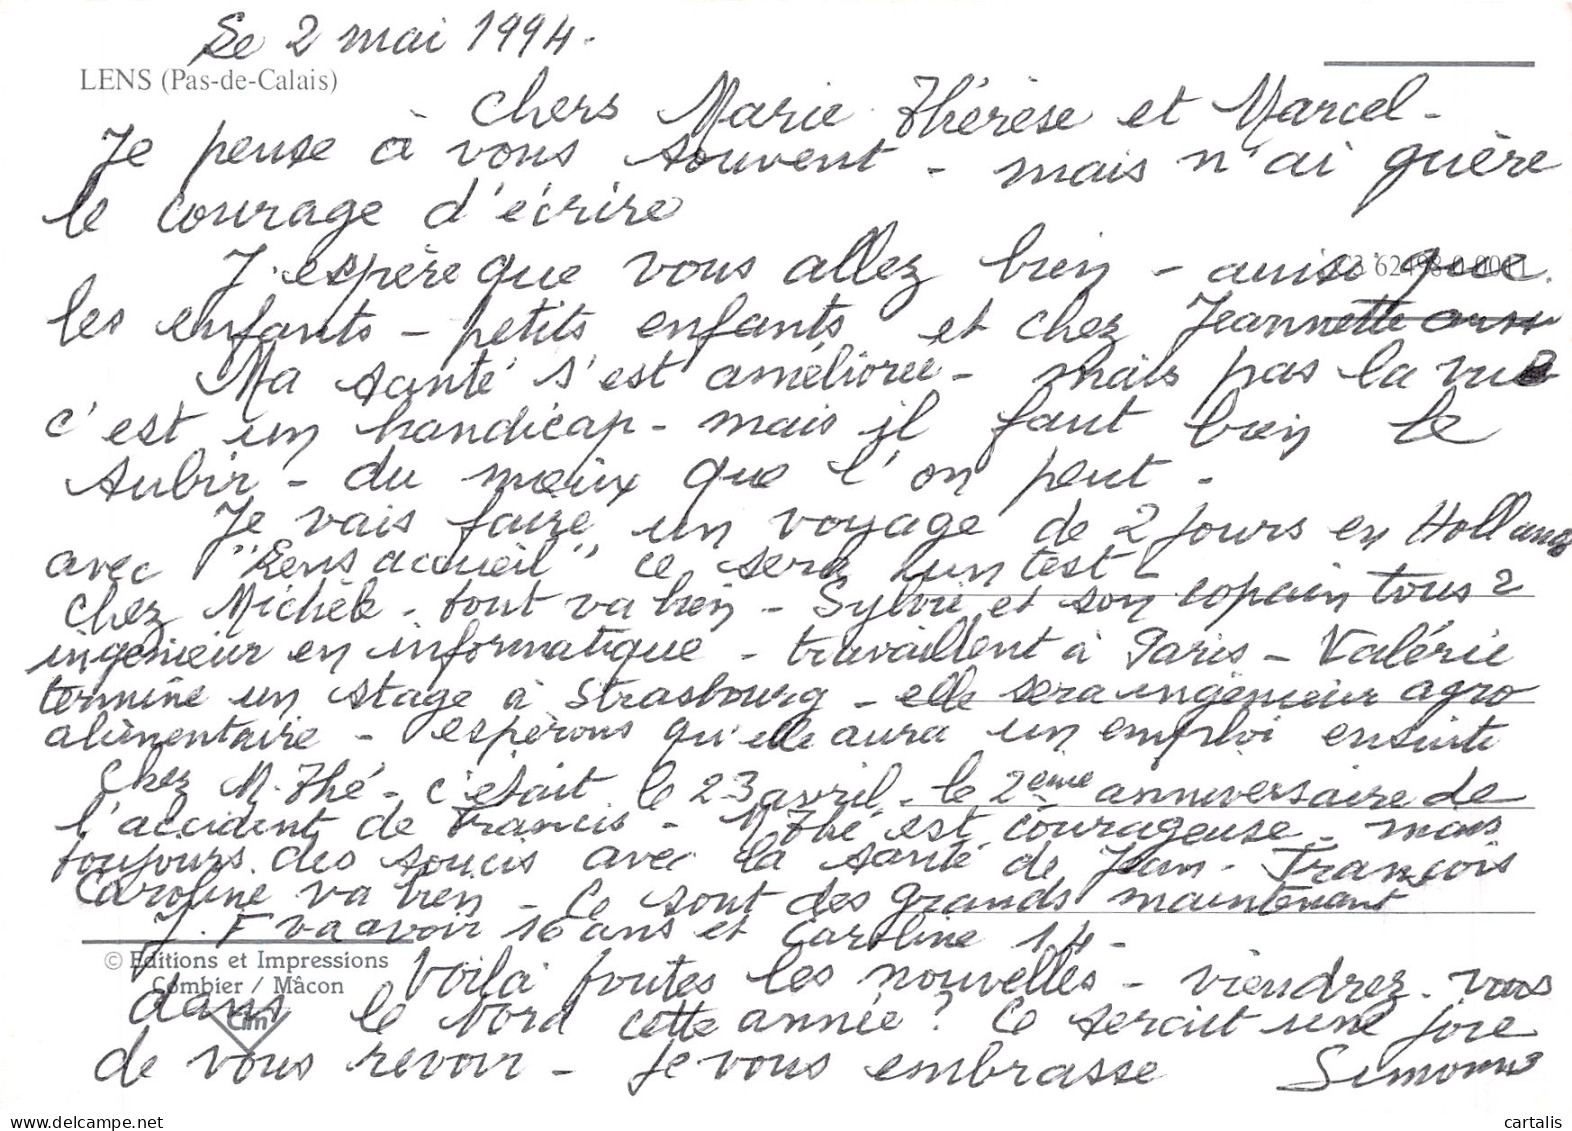 Le 2 mai 1994.
LENS (Pas-de-Calais)
Chers Marie Thérèse et Marcel -
Je pense à vous souvent - mais n'ai guère
le courage d'écrire
J'espère que vous allez bien - ainsi que
les enfants - petits enfants et chez Jeannette aussi
Ma santé s'est améliorée - mais pas la vue
c'est un handicap - mais il faut bien le
subir - du mieux que l'on peut -
Je vais faire un voyage de 2 jours en Hollande
avec "Lens accueil" ce sera un test -
Chez Michèle - tout va bien - Sylvie et son copain tous 2
ingénieur en informatique - travaillent à Paris - Valérie
termine un stage à Strasbourg - elle sera ingénieur agro
alimentaire - espérons qu'elle aura un emploi ensuite
Chez M. Thé - c'était le 23 avril - le 2ème anniversaire de
l'accident de Francis - M Thé est courageuse - mais
toujours des soucis avec la santé de Jean - François
Caroline va bien - Ce sont des grands maintenant
J. F va avoir 16 ans et Caroline 14 -
© Editions et Impressions
Combier / Mâcon
Cim
Voilà toutes les nouvelles - viendrez-vous
dans le Nord cette année ? Ce serait une joie
de vous revoir - Je vous embrasse Simonne
delcampe.net
cartalis